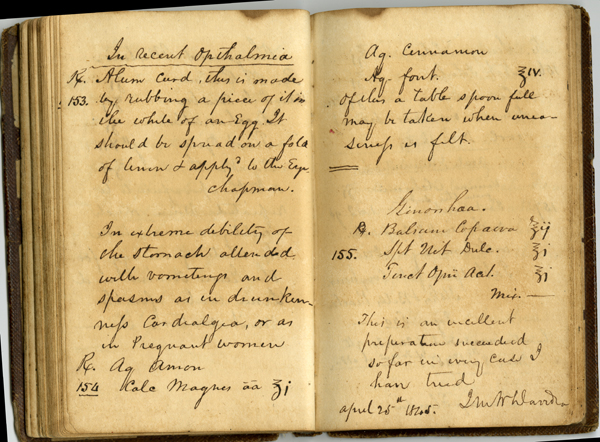 In recent Opthalmia
℞. Alum Curd, this is made
153. by rubbing a piece of it in
the white of an Egg. It
should be spread on a fold
of linen & apply'd to the Eye
Chapman.
In extreme debility of
the stomach attended
with vomitings and
spasms as in drunken-
ness Cardialgia, or as
in Pregnant women
℞. Aq Amon
154 Calc Magnes āā ʒj
Aq. Cinnamon
Aq. font. ʒiv.
Of this a table spoon full
may be taken when unea-
siness is felt.
Ginorrhaa.
℞. Balsam Copaeva ʒij
155. Spt Nit Dulc. ʒj
Tinct Opii Act. ʒj
Mix.
This is an excellent
preparation succeeded
so far in every case I
have tried
April 25th 1845.